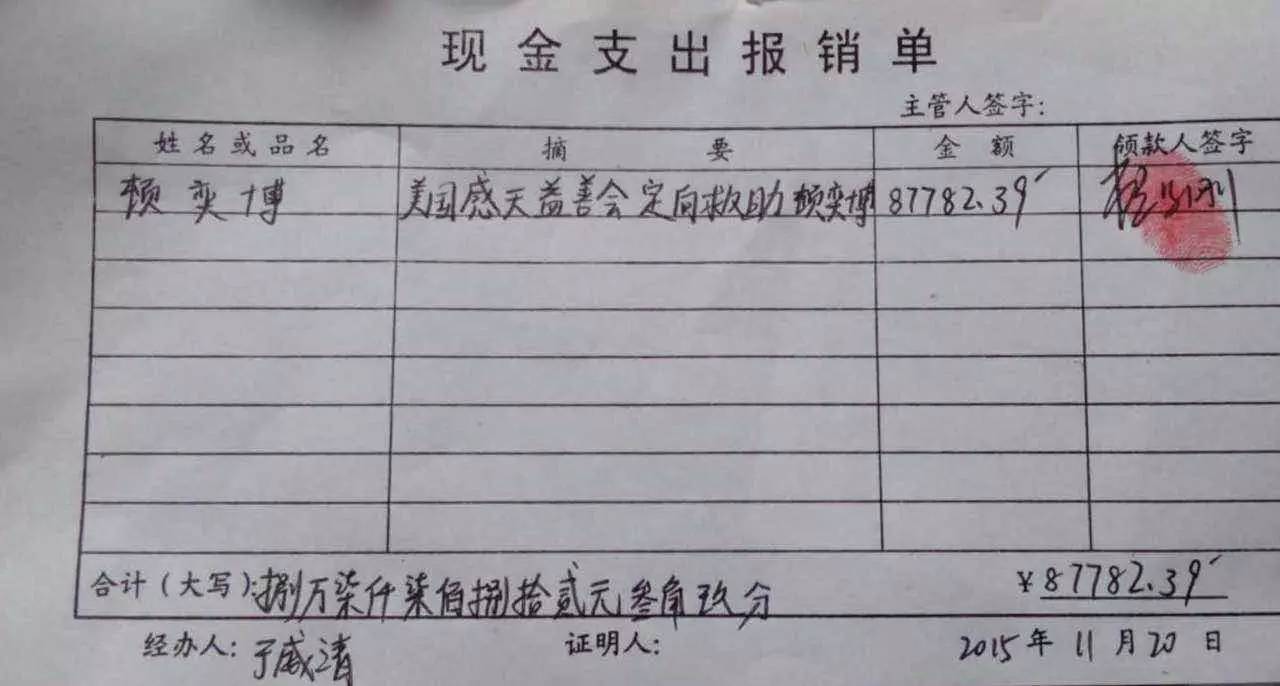 现金支出报销单
主管人签字:
姓名或品名 摘要 金额 领款人签字
赖奕博 美国感天益善会定向救助赖奕博 87782.39
合计（大写）:捌万柒仟柒佰捌拾贰元叁角玖分 ¥87782.39
经办人:于威清 证明人: 2015年11月20日